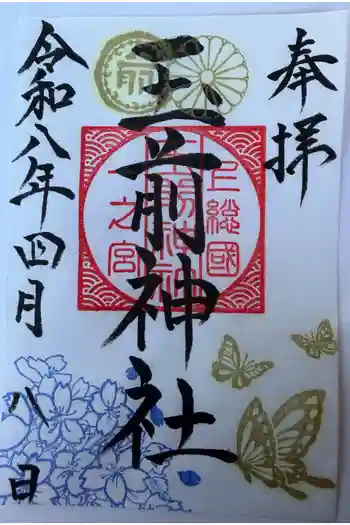 奉拝
玉前神社
上總國
一之宮
令和八年四月八日